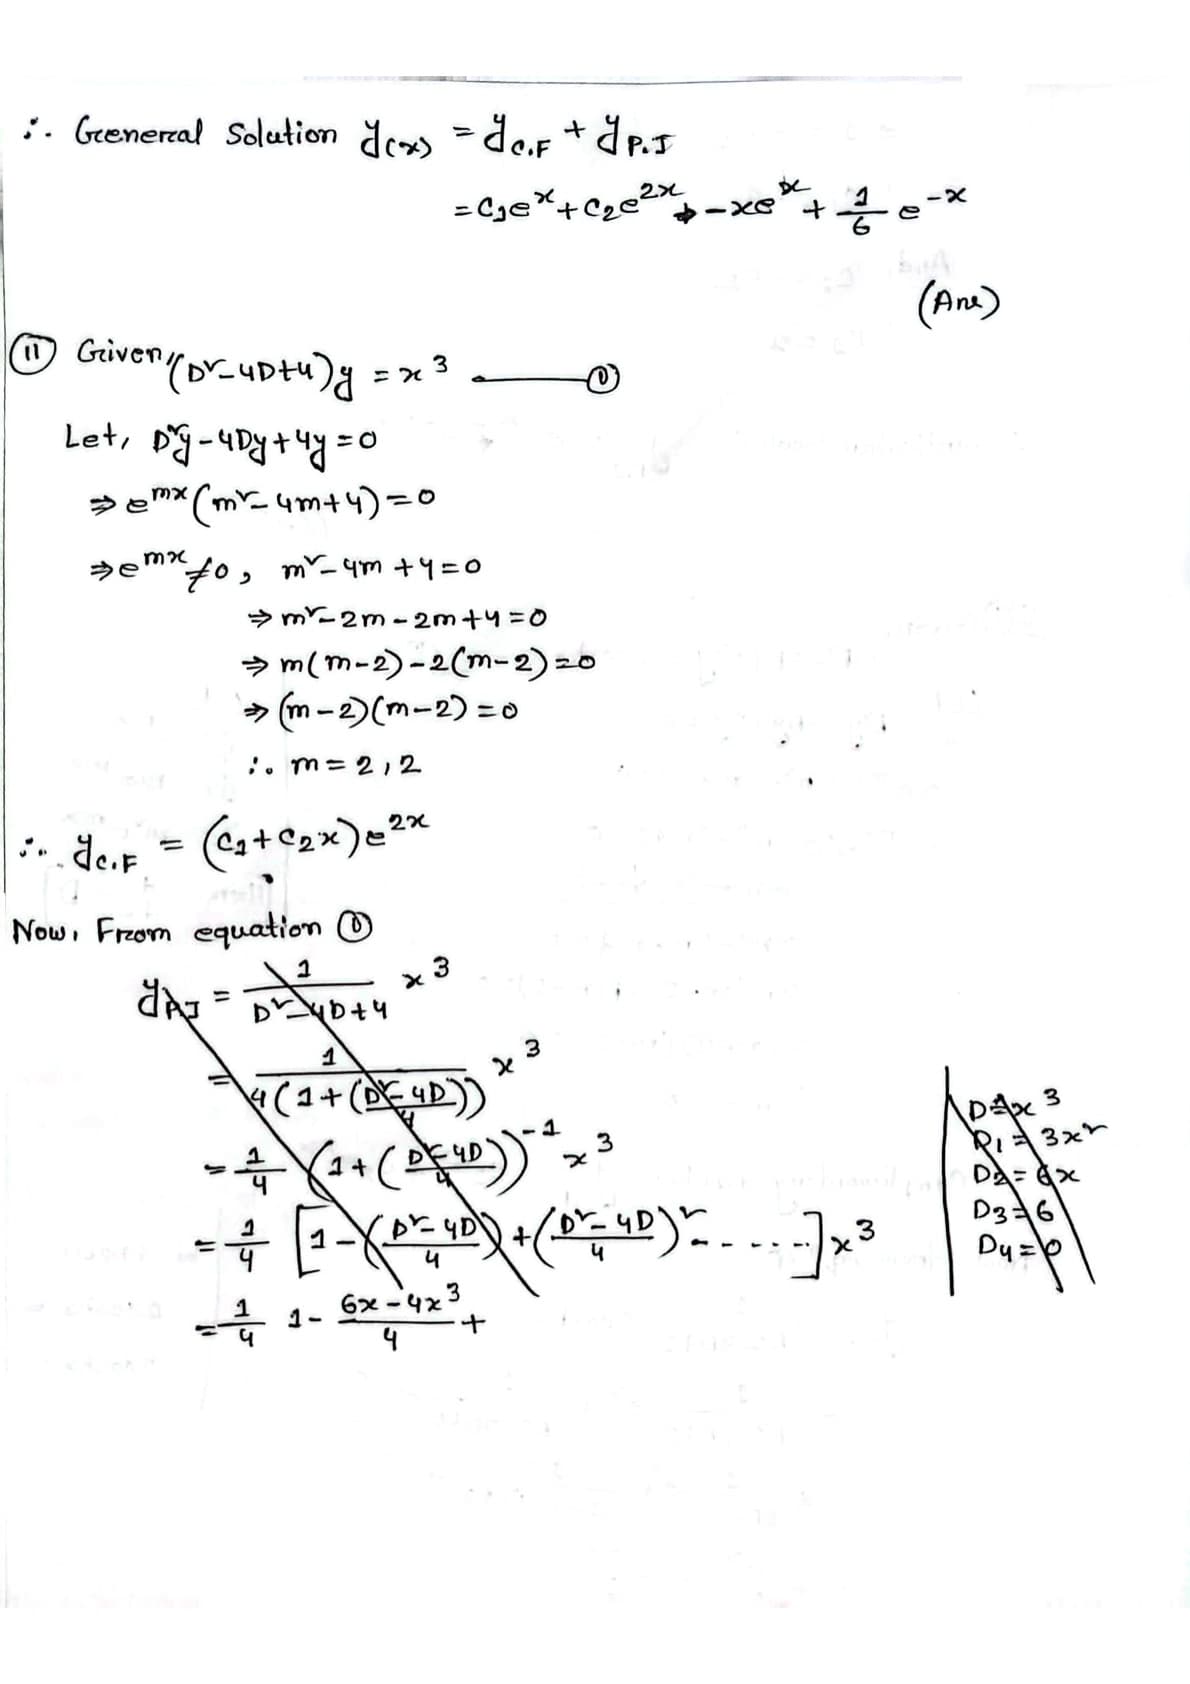 ∴ General Solution y(x) = y_C.F + y_P.I
= C₁eˣ + C₂e²ˣ + - xeˣ + 1/6 e⁻ˣ
(Ans)
(11) Given, (D² - 4D + 4)y = x³ ——— (1)
Let, D²y - 4Dy + 4y = 0
⇒ e^mx (m² - 4m + 4) = 0
⇒ e^mx ≠ 0, m² - 4m + 4 = 0
⇒ m² - 2m - 2m + 4 = 0
⇒ m(m - 2) - 2(m - 2) = 0
⇒ (m - 2)(m - 2) = 0
∴ m = 2, 2
∴ y_C.F = (C₁ + C₂x)e²ˣ
Now, From equation (1)
y_P.I = 1/(D² - 4D + 4) x³
= 1/(4(1 + ((D² - 4D)/4))) x³
= 1/4 (1 + ((D² - 4D)/4))⁻¹ x³
= 1/4 [1 - ((D² - 4D)/4) + ((D² - 4D)/4)² - .....] x³
= 1/4 1 - (6x - 4x³)/4 +
D = x³
D₁ = 3x²
D₂ = 6x
D₃ = 6
D₄ = 0